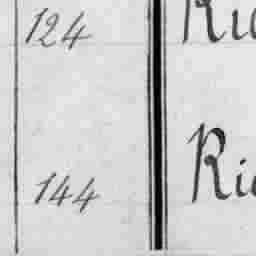 124 Ric
144 Ric